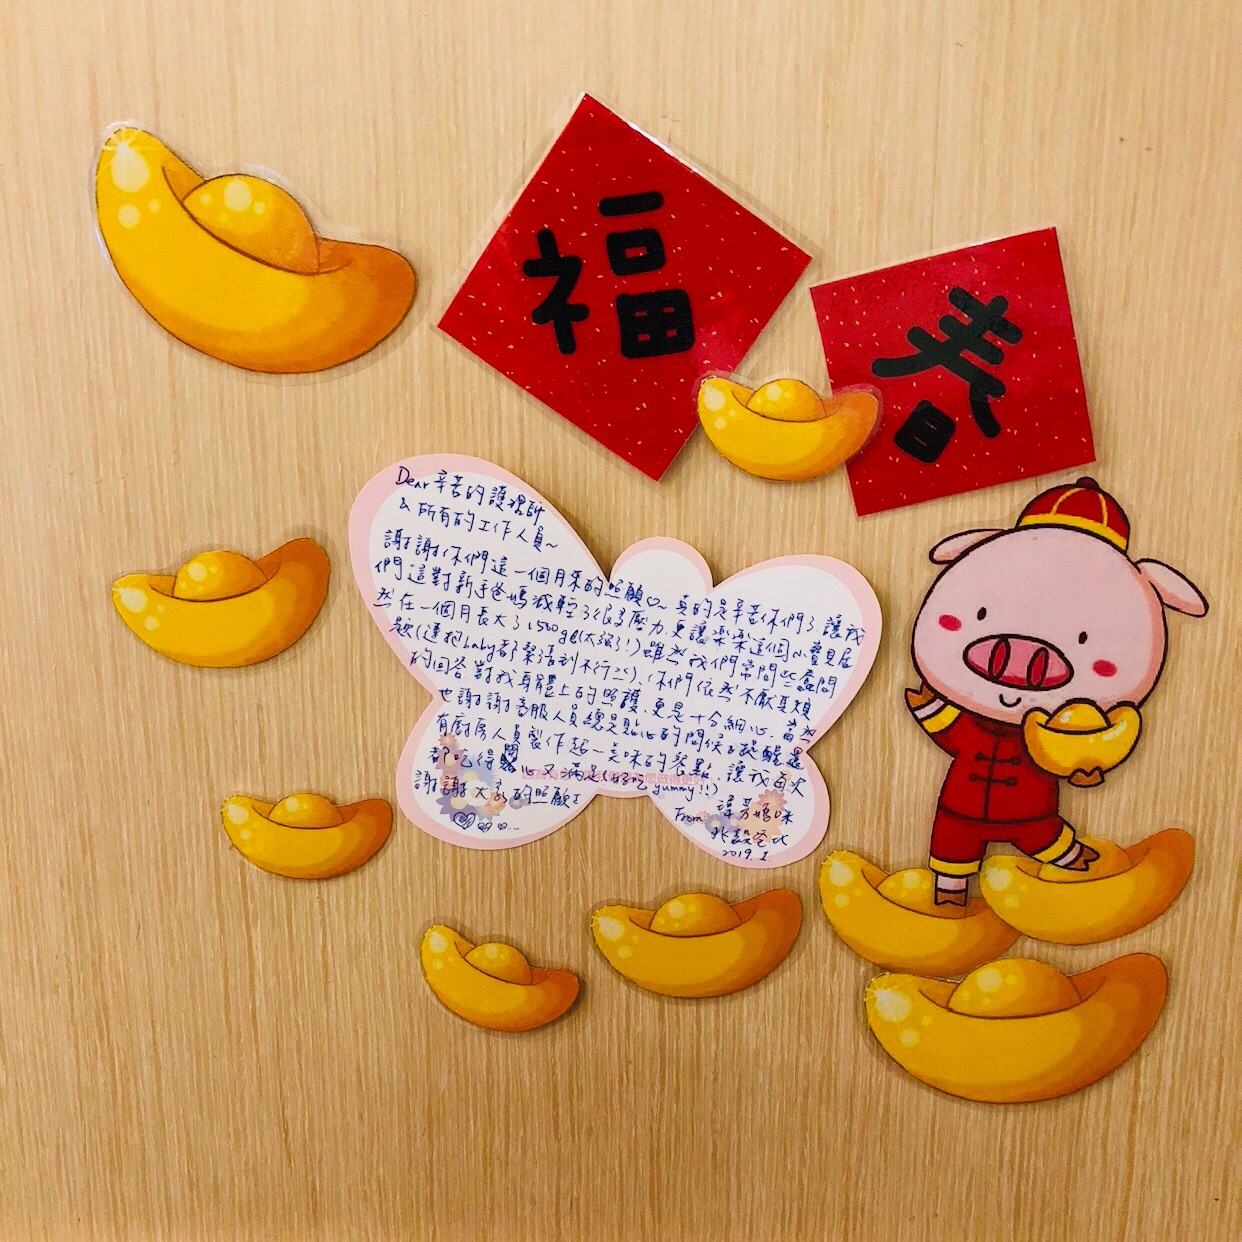 福
春
Dear 辛苦的護理師
& 所有的工作人員~
謝謝你們這一個月來的照顧♡~ 真的是辛苦你們了 讓我
們這對新手爸媽減輕了很多壓力,更讓樂樂這個小寶貝居
然在一個月長大了1500g(太強!!) 雖然我們常問些蠢問
題(連抱baby都緊張到不行==),你們依然不厭其煩
的回答 對我身體上的照護,更是十分細心,當然
也謝謝客服人員總是貼心的問候&提醒,還
有廚房人員製作超~美味的餐點,讓我每次
都吃得開心又滿足(好吃yummy!!)
謝謝大家的照顧
From 媽咪
爸比
2019.1